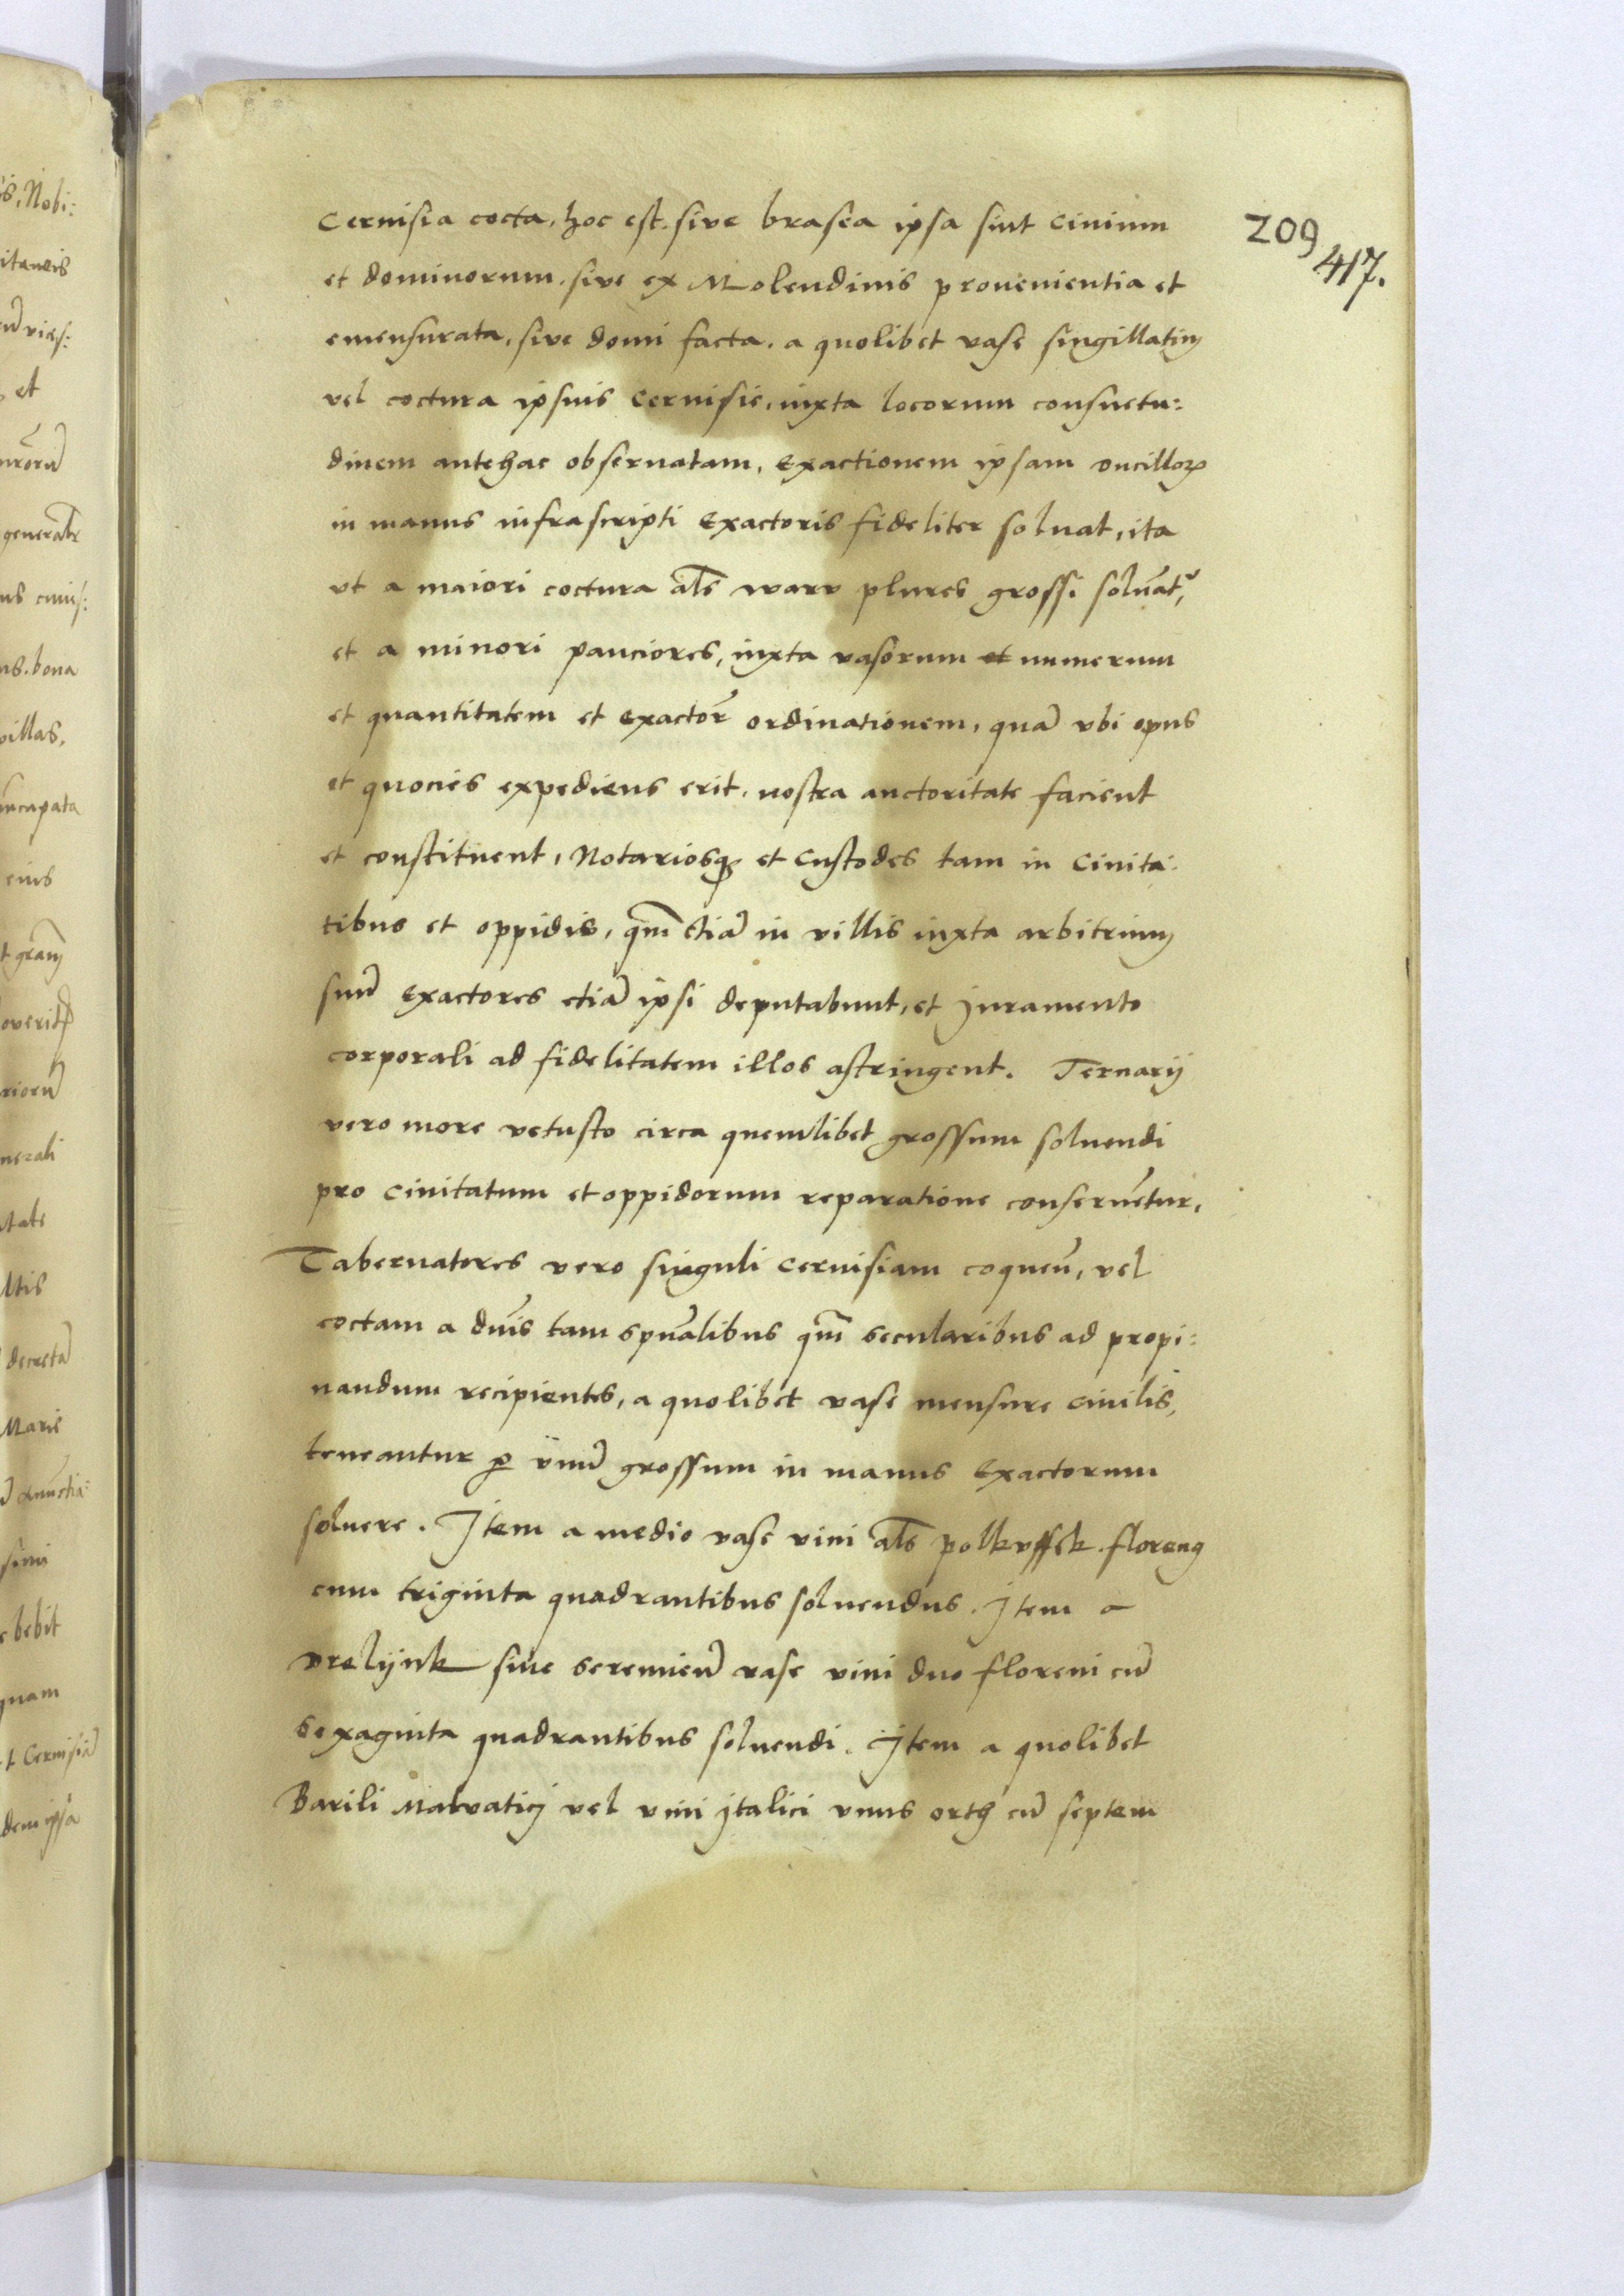 209
417.
Cervisia cocta, hoc est. sive brasea ipsa sint Civium
et dominorum, sive ex Molendinis provenientia et
emensurata, sive domi facta. a quolibet vase singillatim
vel coctura ipsius Cervisie, iuxta locorum consuetu:
dinem antehac observatam, Exactionem ipsam ducilloꝝ
in manus infrascripti Exactoris fideliter solvat, ita
ut a maiori coctura al͞s warv plures grossi solvāt,
et a minori pauciores, iuxta vasorum et numerum
et quantitatem et exactor̄ ordinationem, quā ubi opus
et quocies expediens erit, nostra auctoritate facient
et constituent, Notariosqꝫ et Custodes tam in Civita:
tibus et oppidis, qm̄ etiā in villis iuxta arbitrium
suū Exactores etiā ipsi deputabunt, et Juramento
corporali ad fidelitatem illos astringent. Ternarij
vero more vetusto circa quemlibet grossum solvendi
pro Civitatum et oppidorum reparatione conservētur,
Tabernatores vero singuli Cervisiam coqueñ, vel
coctam a dn̄is tam spūalibus qm̄ secularibus ad propi:
nandum recipientes, a quolibet vase mensure Civilis,
teneantur ꝑ unū grossum in manus Exactorum
solvere. Item a medio vase vini al͞s polkuffek. florenꝯ
cum triginta quadrantibus solvendus. Item a
drelijnk sive seremieñ vase vini duo floreni cū
sexaginta quadrantibus solvendi. Item a quolibet
Barili Malvaticj vel vini jtalici unus orth cū septem
is, Nobi:
itaneis
et
generalr̄
bona
villas,
nūcupata
eius
nerali
decretā
Maris
bebit
quam
t Cervisiā